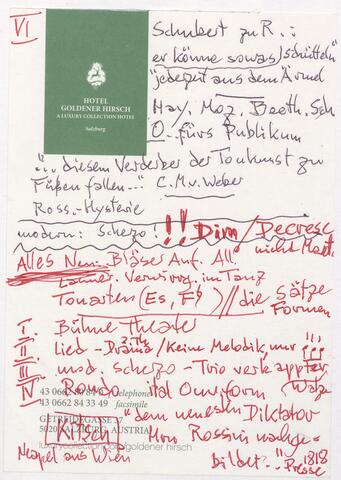 VI
HOTEL
GOLDENER HIRSCH
A LUXURY COLLECTION HOTEL
Salzburg
Schubert zu R.:
er könne sowas "schütteln"
"jederzeit aus dem Ärmel
Hay, Moz, Beeth, Sch
O. fürs Publikum
"... diesem Verderber der Tonkunst zu
Füßen fallen..." C.M.v.Weber
Ross.-Hysterie
modern: Scherzo! !! Dim/Decresc
nicht
Alles Bläser Auf. All!
Lanner. im Tanz
Tonarten (Es, F) // die Sätze
Formen
I. Bühne Theater
II. Lied - Drama / Keine Melodik, nur !!!
III. mod. Scherzo - Trio
IV. Rondo ital Walz
43 0662 80 84 0 telephone
43 0662 84 33 49 facsimile
GETREIDEGASSE 37
5020 SALZBURG, AUSTRIA
"dem neuesten Diktator
Kitsch Hrn Rossini nachge-
luxurycollection goldener hirsch
bildet..." 1818
Neapel aus Wien Presse